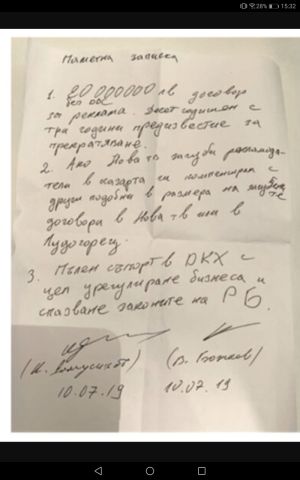 15:32
28%
Паметна записка
1. 20 000000 лв договор
без ддс
за реклама. годишен с
три години предизвестие за
прекратяване.
2. Ако Нова тв загуби рекламода-
тели в хазарта ги компенсира с
други подобни в размера на загубените
договори в Нова тв или в
Лудогорец.
3. Пълен съпорт в ДКХ с
цел урегулиране бизнеса и
спазване законите на РБ.
(К. Домусчиев) (В. Божков)
10.07.19 10.07.19